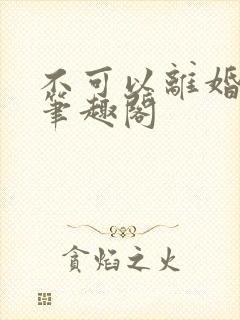 不可以離婚
筆趣閣
貪焰之火